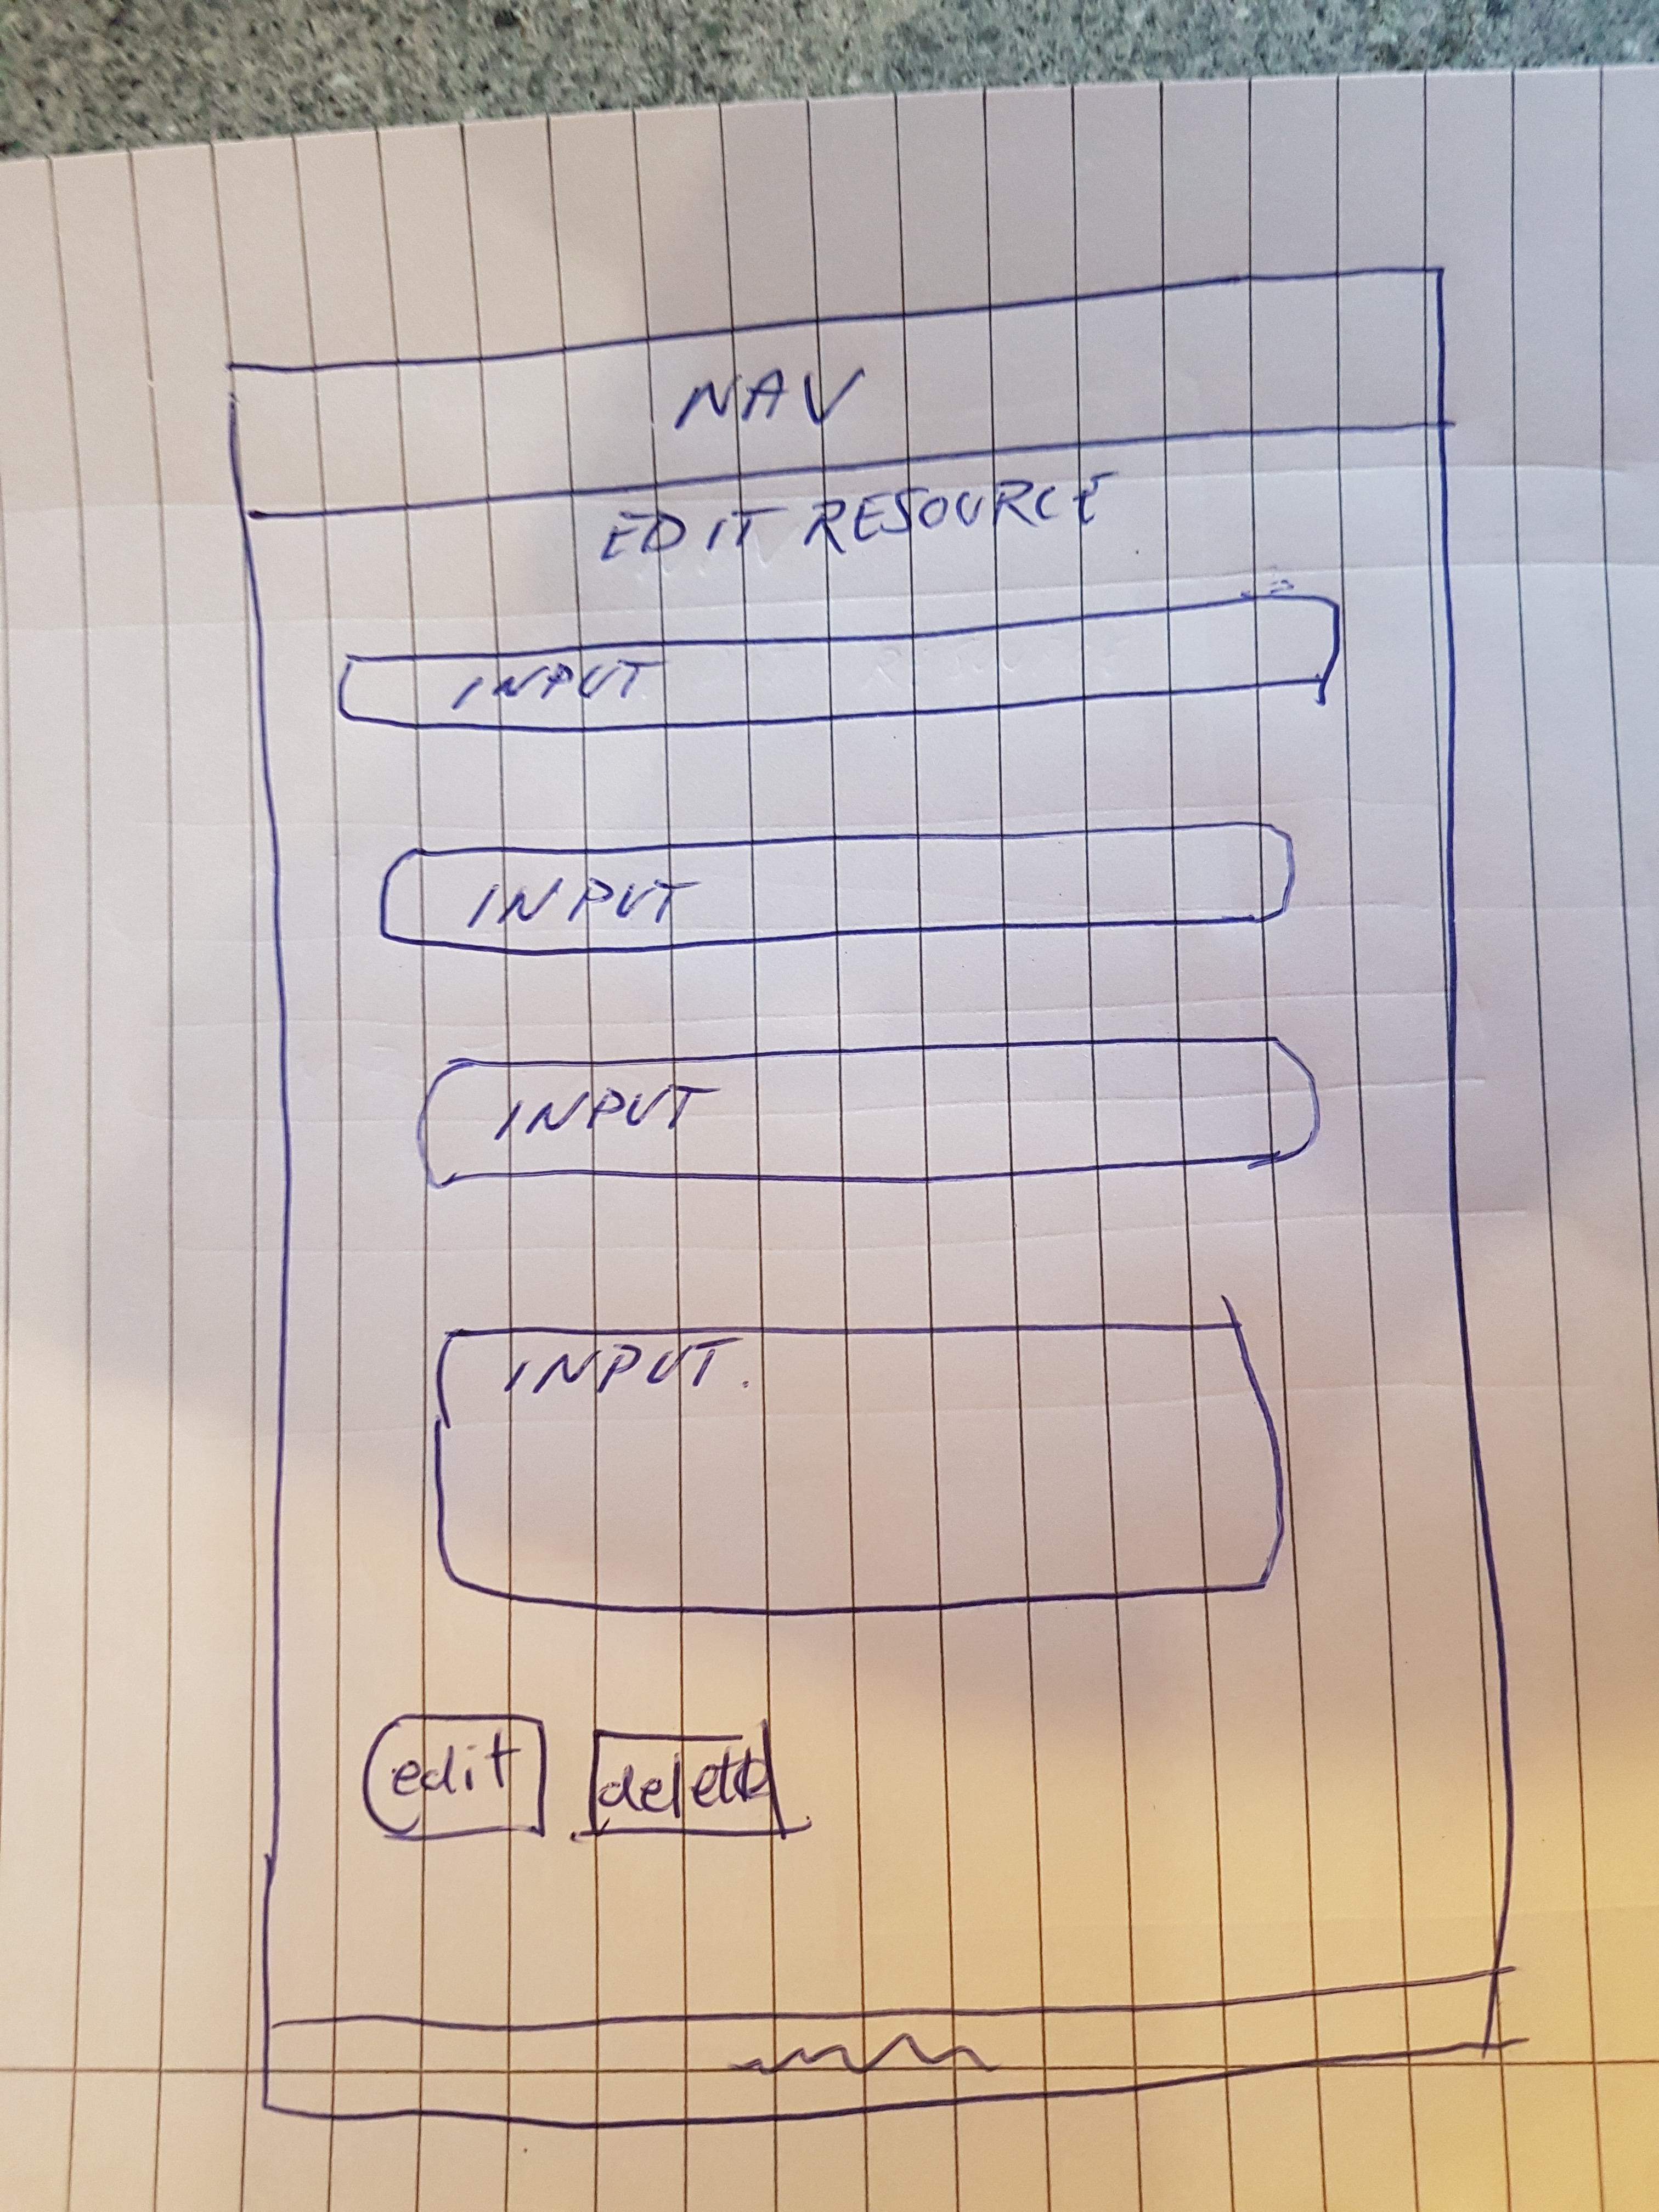 NAV
EDIT RESOURCE
INPUT
INPUT
INPUT
INPUT.
edit delete